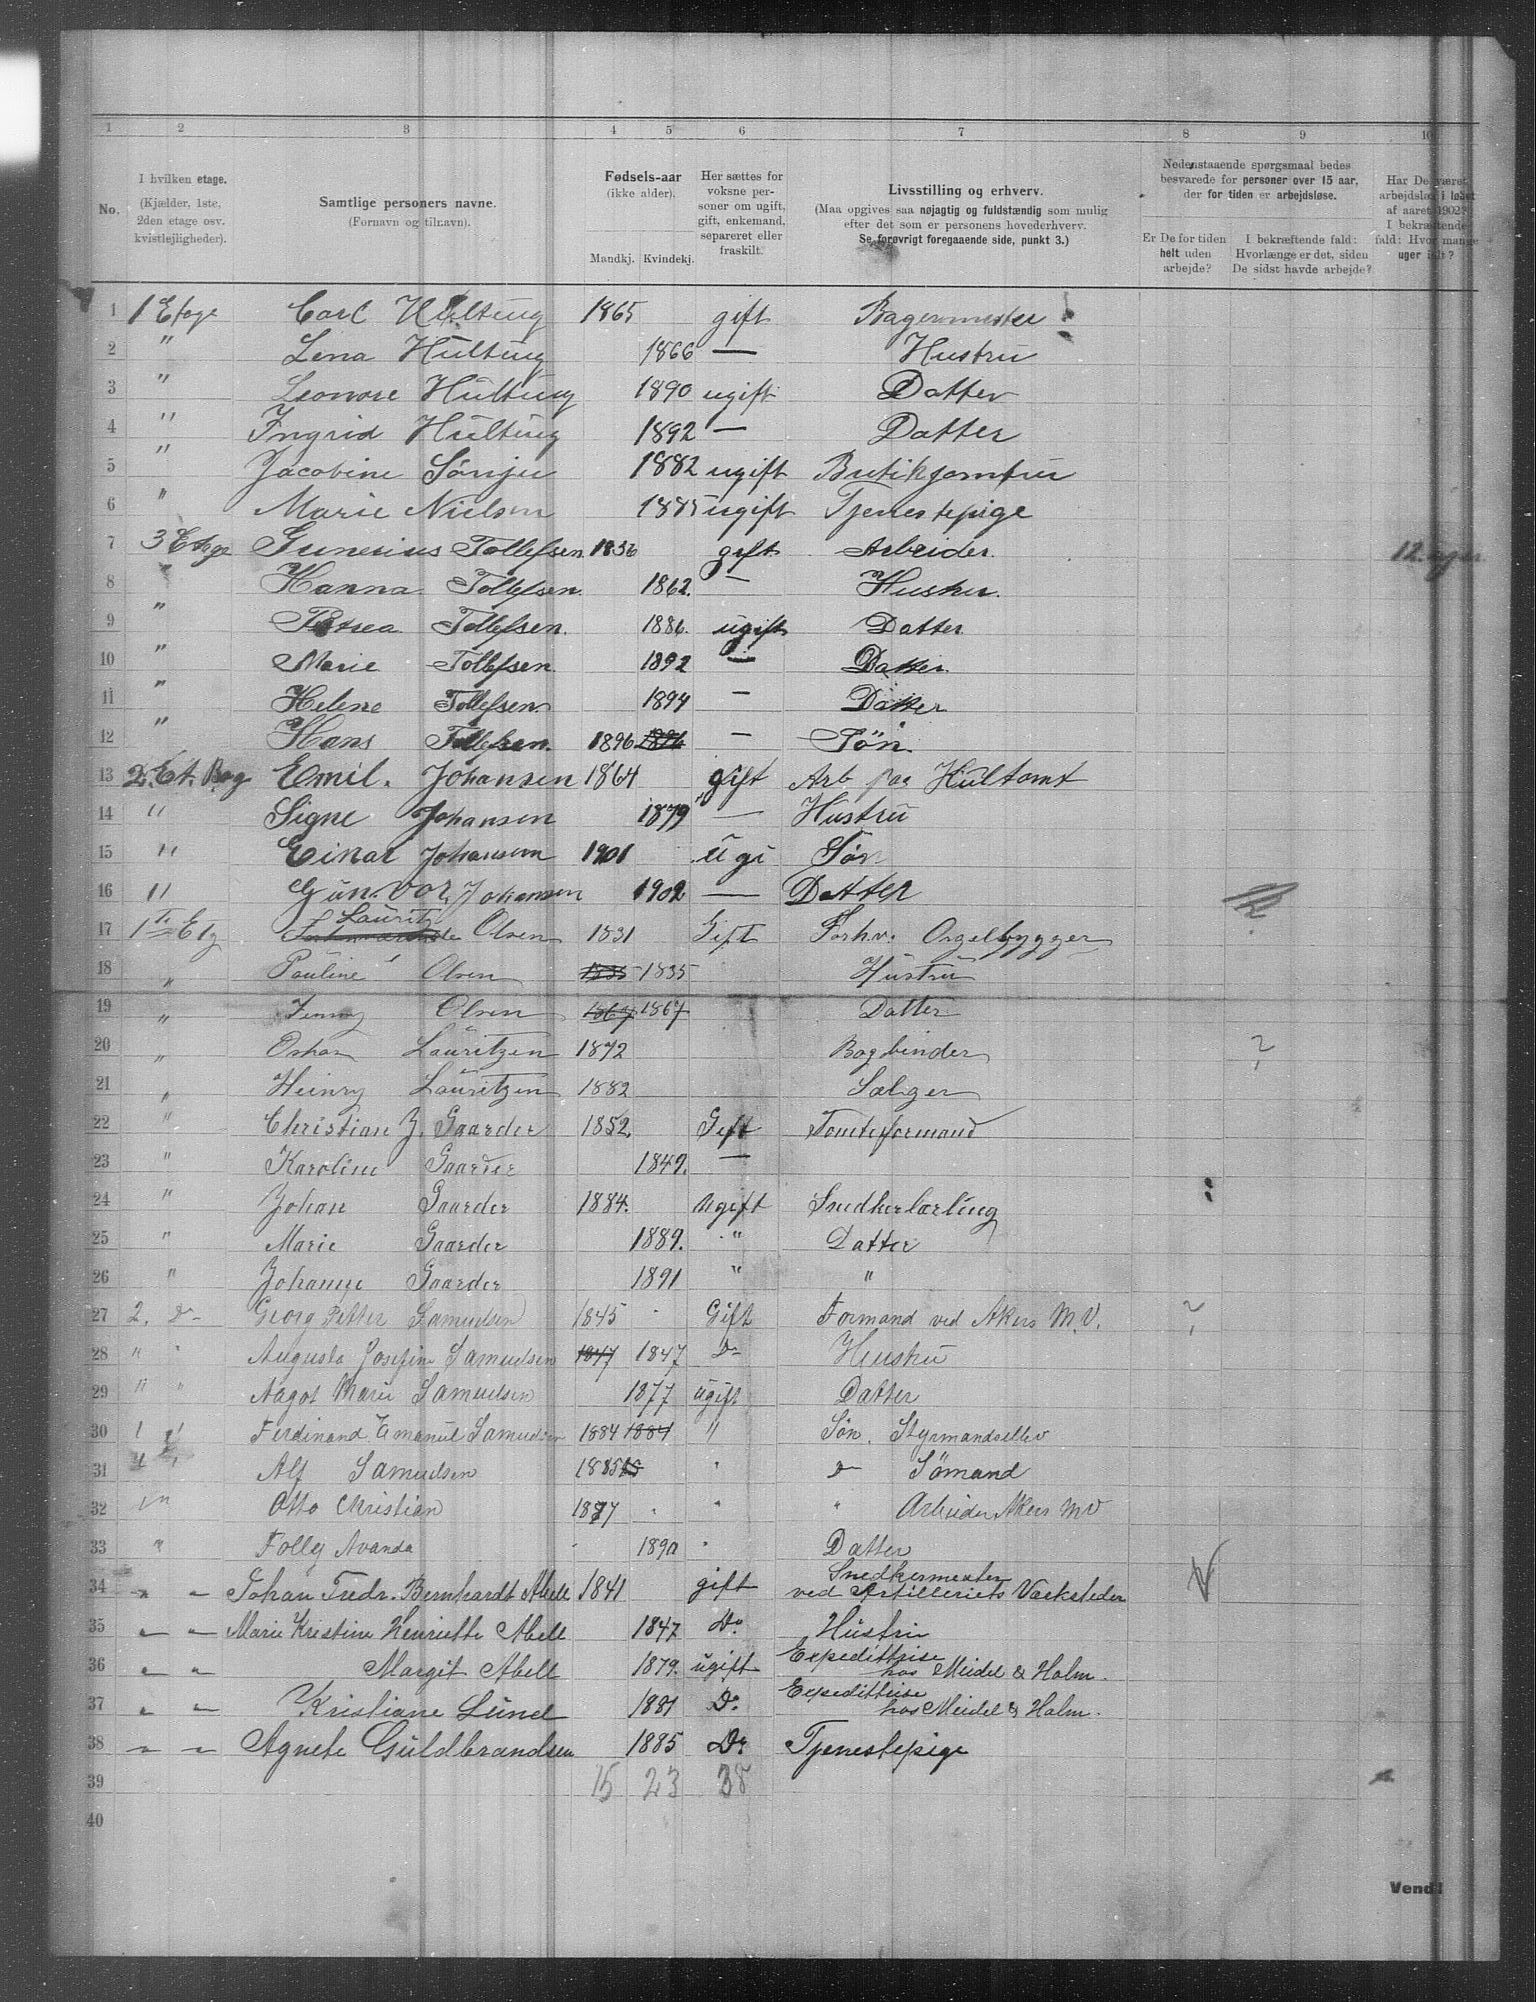 1 2 3 4 5 6 7 8 9 10
No.
I hvilken etage.
(Kjælder, 1ste,
2den etage osv.
kvistlejligheder).
Samtlige personers navne.
(Fornavn og tilnavn).
Fødsels-aar
(ikke alder).
Mandkj. Kvindekj.
Her sættes for
voksne per-
soner om ugift,
gift, enkemand,
separeret eller
fraskilt.
Livsstilling og erhverv.
(Maa opgives saa nøjagtig og fuldstændig som mulig
efter det som er personens hovederhverv.
Se forøvrigt foregaaende side, punkt 3.)
Nedenstaaende spørgsmaal bedes
besvarede for personer over 15 aar,
der for tiden er arbejdsløse.
Er De for tiden
helt uden
arbejde?
I bekræftende fald:
Hvorlænge er det, siden
De sidst havde arbejde?
Har De været
arbejdsløs i løbet
af aaret 1902?
I bekræftende
fald: Hvor mange
uger ialt?
1 1 Etage Carl Hultung 1865 gift Bagermester
2 " Lena Hultung 1866 — Hustru
3 " Leonore Hultung 1890 ugift Datter
4 " Ingrid Hultung 1892 — Datter
5 " Jacobine Sønju 1882 ugift Butikjomfru
6 " Marie Nielsen 1885 ugift Tjenestepige
7 3 Etage Gunerius Tollefsen 1836 gift Arbeider 12 uger
8 " Hanna Tollefsen 1862. — Hustru.
9 " Tollefsen. 1886. ugift Datter
10 " Marie Tollefsen 1892 — Datter
11 " Helene Tollefsen 1894 — Datter
12 " Hans Tollefsen. 1896 1896 — Søn.
13 2. Et. Bag Emil. Johansen 1864 gift Arb paa
14 " Signe Johansen 1879 — Hustru
15 " Einar Johansen 1901 ugi Søn
16 " Gunvor Johansen 1902 — Datter
17 1ste Etg Lauritz Olsen 1831 Gift Forhv. Orgelbygger
18 " Pauline Olsen 1835 1835 Hustru
19 " Jenny Olsen 1867 1867 Datter
20 " Oskar Lauritzen 1872 Bogbinder ?
21 " Heinry Lauritzen 1882 Sælger
22 " Christian Z. Gaarder 1852. Gift Tomteformand
23 " Karoline Gaarder 1849. —
24 " Johan Gaarder 1884. Ugift Snedkerlærling
25 " Marie Gaarder 1889. " Datter
26 " Johanne Gaarder 1891 " "
27 2. Do Georg Petter Samuelsen 1845 Gift Formand ved Akers M.V. ?
28 " " Augusta Josefine Samuelsen 1847 1847 Do Hustru
29 " " Aagot Marie Samuelsen 1877 ugift Datter
30 " " Ferdinand Emanuel Samuelsen 1884 1884 " Søn. Styrmandselev
31 " " Alf Samuelsen 1885 85 " Do Sømand
32 " " Otto Christian 1887 " " Arbeider Akers M V
33 " Folly Avanda 1890 " Datter
34 " " Johan Fredr. Bernhardt Abell 1841 gift Snedkermester
ved Artilleriets Værksteder
35 " " Marie Kristine Henriette Abell 1847 Do Hustru
36 " " Margit Abell 1879. ugift Expeditrise
hos Meidel & Holm.
37 " " Kristiane Lund 1881 Do Expeditrise
hos Meidel & Holm.
38 " " Agnete Guldbrandsen 1885 Do Tjenestepige
39 15 23 38
40
Vend!